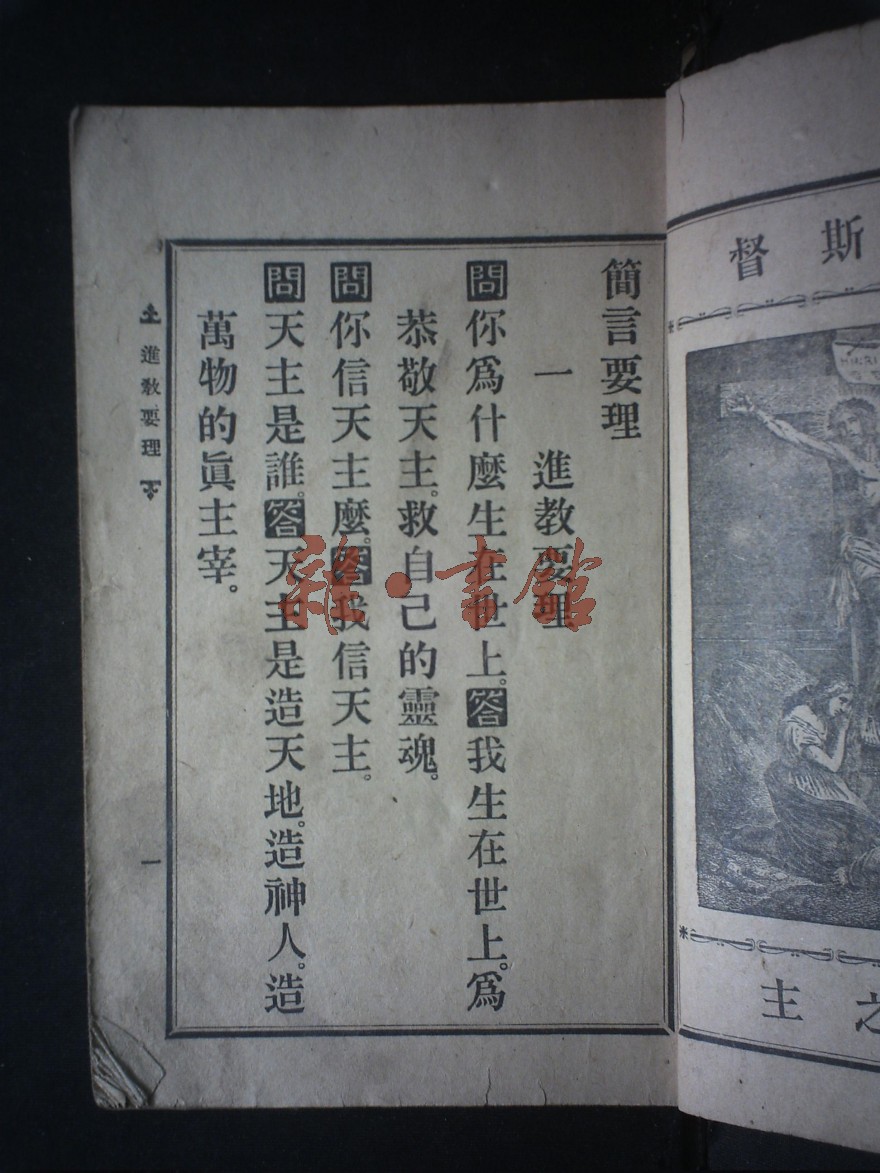 簡言要理
一 進教要理
問你爲什麼生在世上。答我生在世上。爲
恭敬天主。救自己的靈魂。
問你信天主麼。答我信天主。
問天主是誰。答天主是造天地。造神人。造
萬物的眞主宰。
進教要理
一
斯督
之主
雜·書館